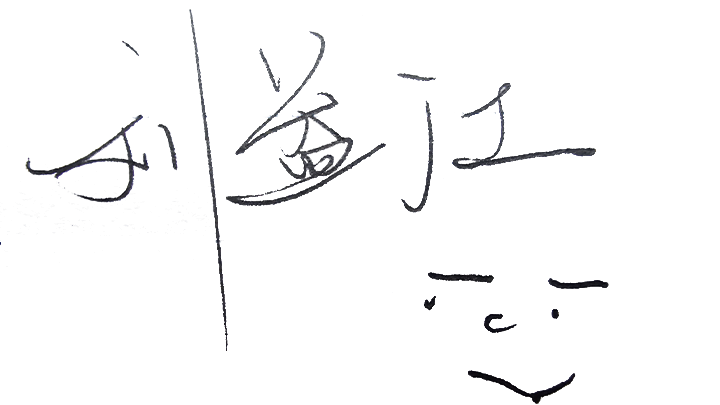 刘益江